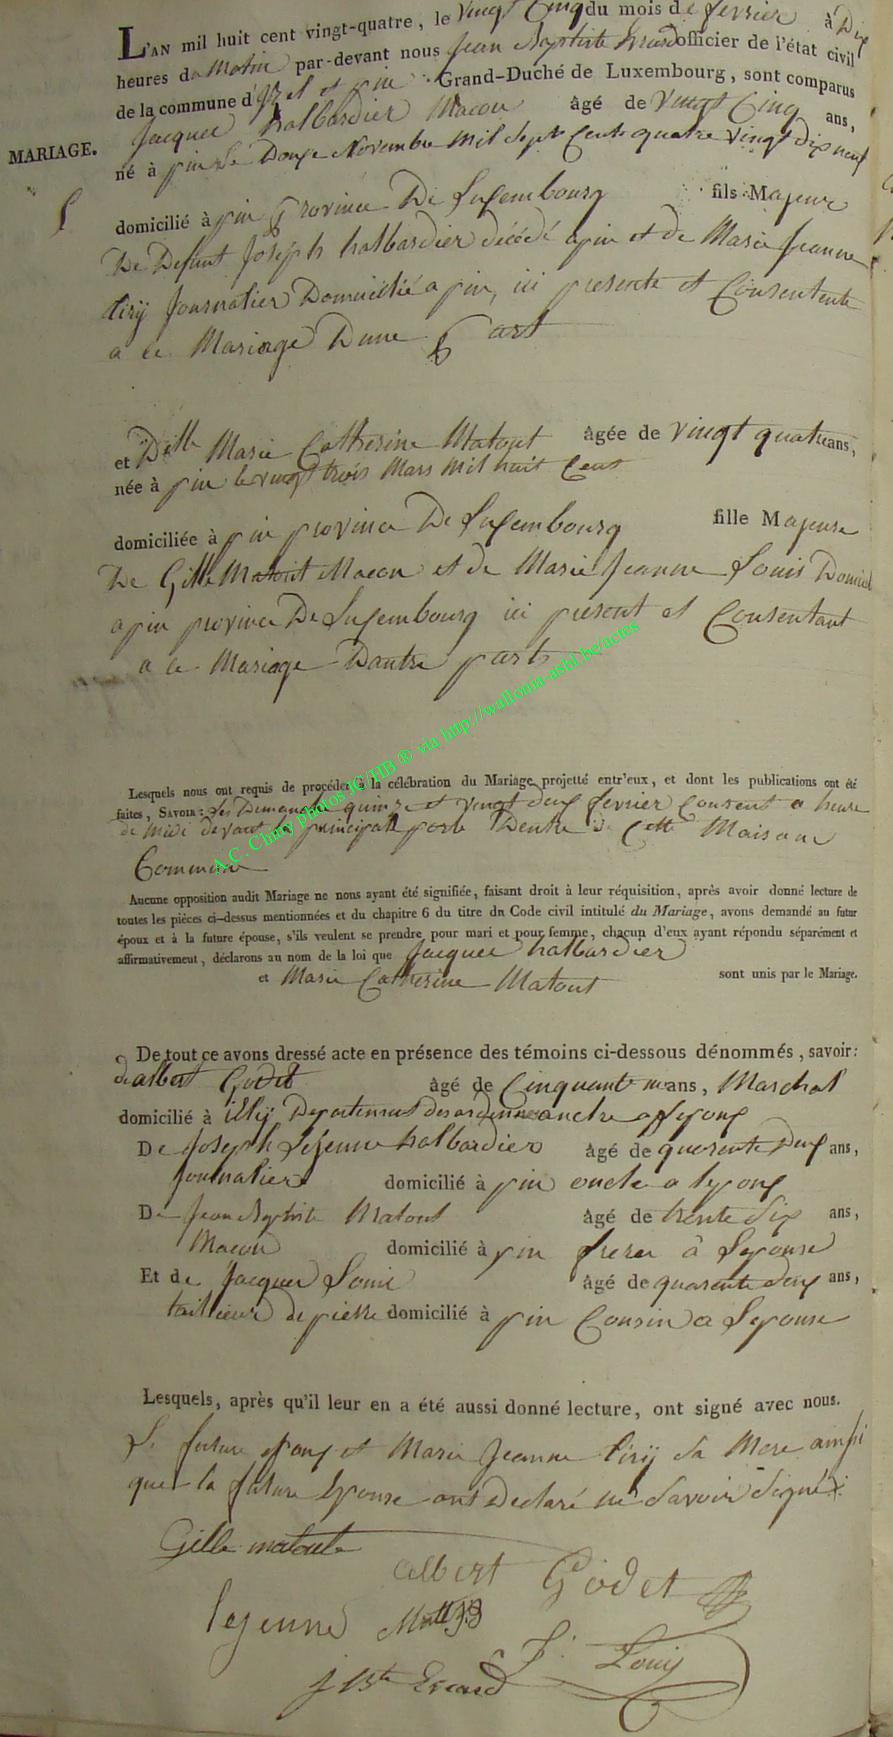 L'AN mil huit cent vingt-quatre, le vingt Cinq du mois de fevrier à Dix
heures du Matin par-devant nous Jean Baptiste officier de l'état civil
de la commune d'Izel et pin Grand-Duché de Luxembourg, sont comparus
Jacques halbardier Macon âgé de Vingt Cinq ans,
MARIAGE.
né à pin le Douze Novembre mil Sept Cent quatre vingt dix neuf
domicilié à pin province De Luxembourg fils Majeur
De Defunt Joseph halbardier décédé a pin et de Marie Jeanne
tiry Journalier Domicilié a pin, ici presente et Consentente
a ce Mariage Dune part
et Delle Marie Catherine Matout âgée de vingt quatre ans,
née à pin le vingt trois Mars mil huit Cent
domiciliée à pin province De Luxembourg fille Majeure
De Gille Matout Macon et de Marie Jeanne Louis Domicil
a pin province De Luxembourg ici present et Consentant
a ce Mariage Dautre part
Lesquels nous ont requis de procéder à la célébration du Mariage projetté entr'eux, et dont les publications ont été
faites, SAVOIR: les Dimanche quinze et vingt deux fevrier Courent a heure
de midi devant la principalle porte Dentre De Cette Maison
Commune
Aucune opposition audit Mariage ne nous ayant été signifiée, faisant droit à leur réquisition, après avoir donné lecture de
toutes les pièces ci-dessus mentionnées et du chapitre 6 du titre du Code civil intitulé du Mariage, avons demandé au futur
époux et à la future épouse, s'ils veulent se prendre pour mari et pour femme, chacun d'eux ayant répondu séparément et
affirmativement, déclarons au nom de la loi que Jacques halbardier
et Marie Catherine Matout sont unis par le Mariage.
De tout ce avons dressé acte en présence des témoins ci-dessous dénommés, savoir:
d'albert Godet âgé de Cinquante ans, Marchal
domicilié à illy Departement des ardennes oncle a lepoux
De Joseph Lejeune halbardier âgé de quarente Deux ans,
Journalier domicilié à pin oncle a lepoux
De Jean Baptiste Matout âgé de trente Six ans,
Macon domicilié à pin frere à Lepouse
Et de Jacques Louis âgé de quarente deux ans,
taillieur de pierre domicilié à pin Cousin a Lepouse
Lesquels, après qu'il leur en a été aussi donné lecture, ont signé avec nous.
Le future epoux et Marie Jeanne tiry Sa Mere ainsi
que la future Epouse ont Declaré ne Savoir Signé
Gille matoute
albert Godet
lejeune
J. Louis
j Bte
A.C. Chiny photos JC/HB ® via http://wallonia-asbl.be/actes